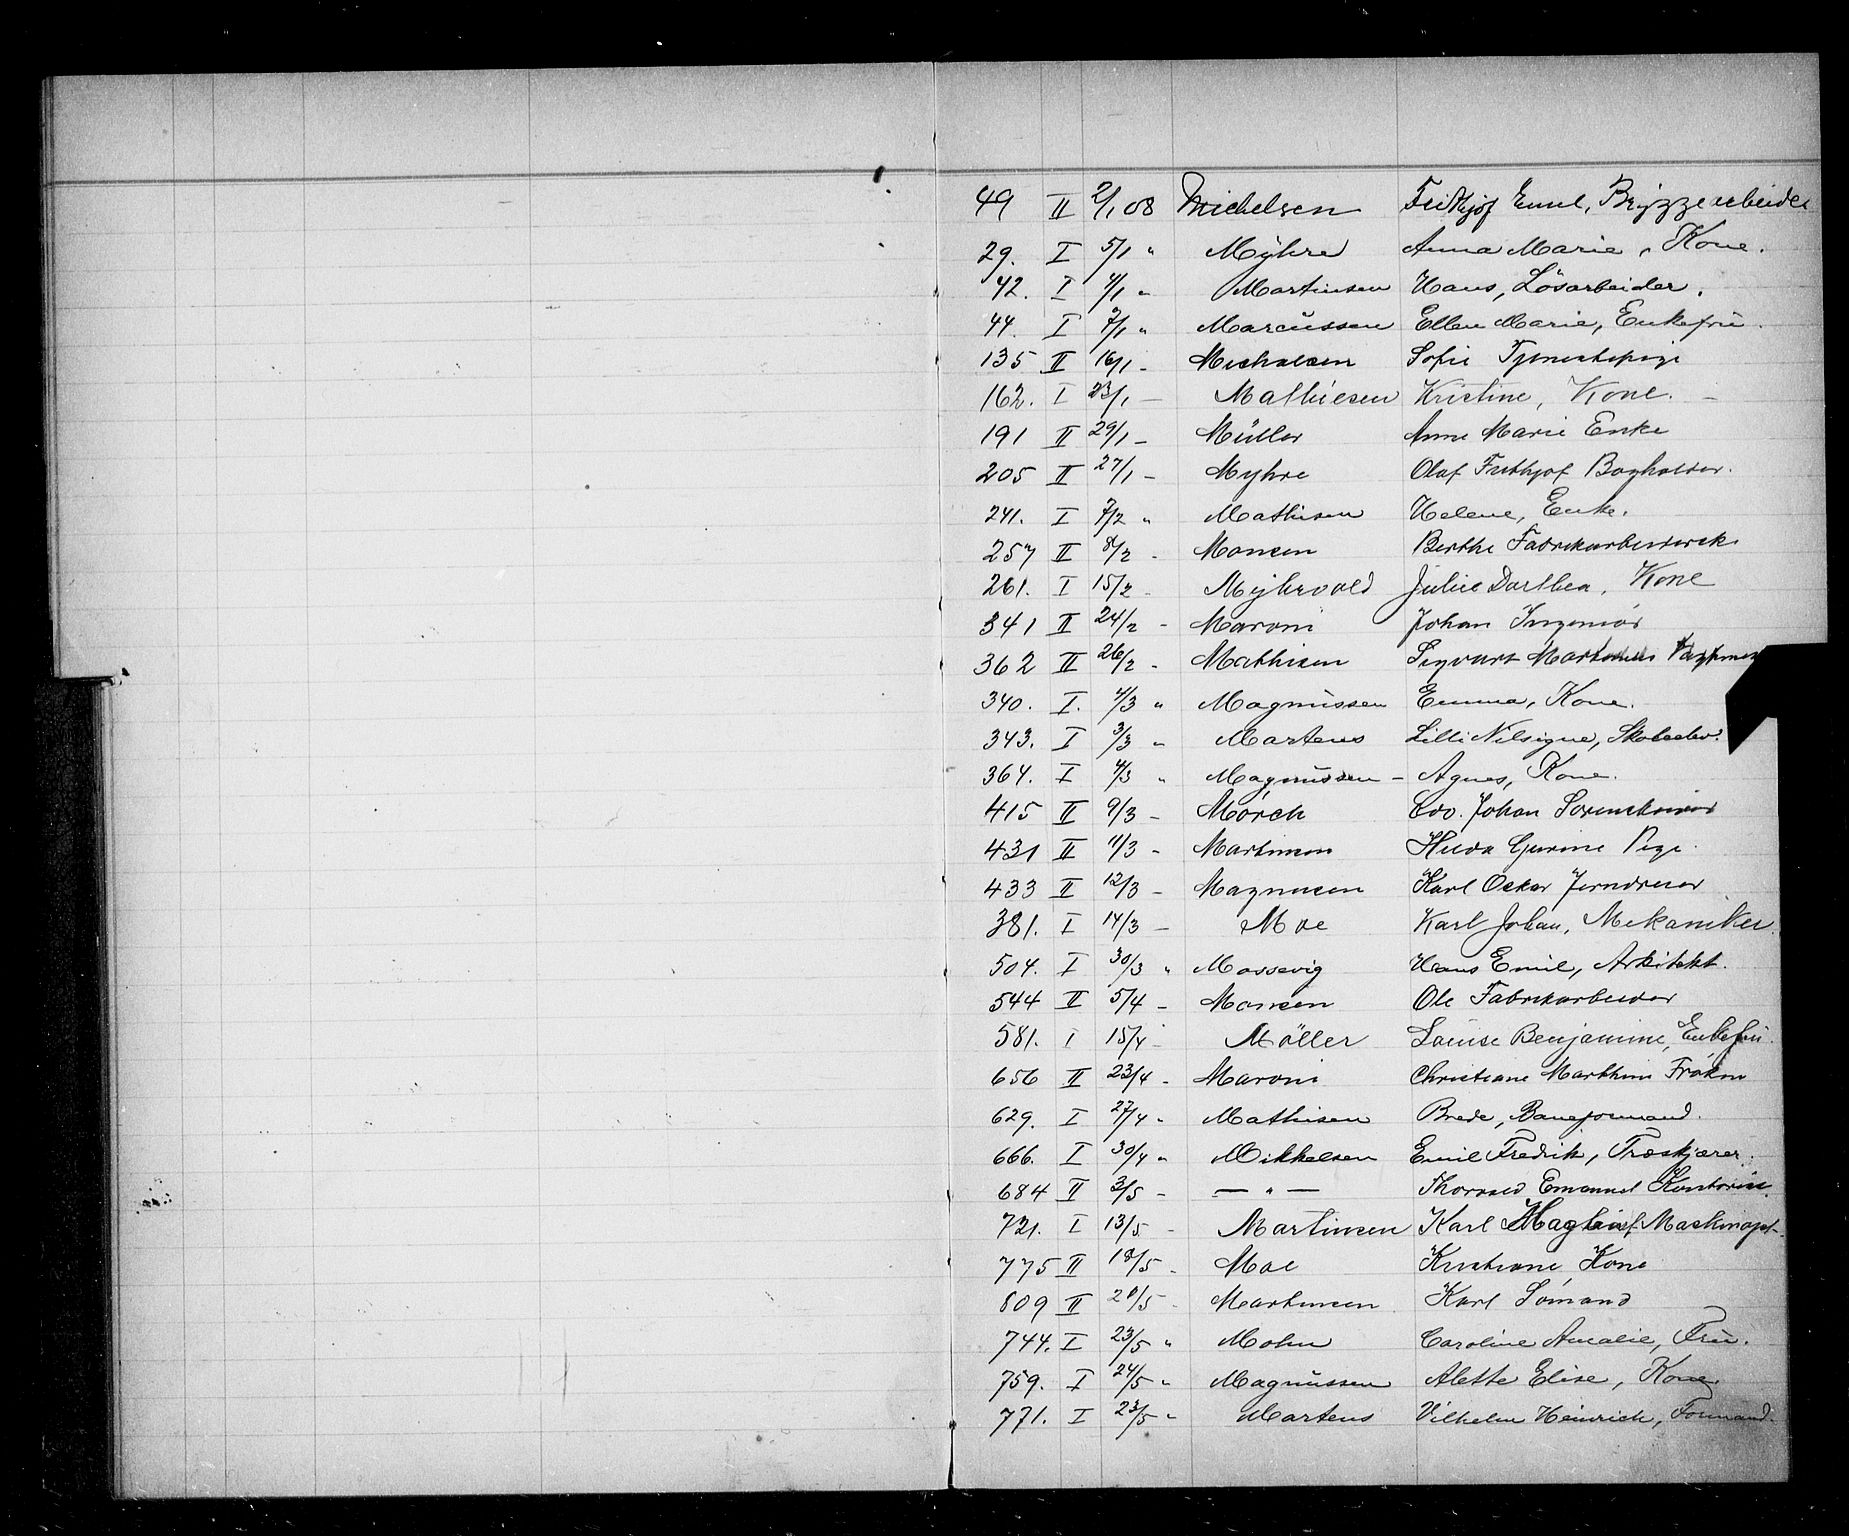 49 II 2/1 08 Michelsen Frithjof Emil, Bryggearbeider
29. I 5/1 " Myhre Anna Marie, Kone.
42. I 4/1 " Martinsen Hans, Løsarbeider.
44. I 7/1 " Marcussen Ellen Marie, Enkefru.
135 II 16/1 - Michalsen Sofie Tjenestepige
162. I 23/1 - Mathiesen Kristine, Kone. -
191 II 29/1 - Müller Anne Marie Enke
205 II 27/1 - Myhre Olaf Frithjof Bogholder.
241. I 7/2 " Mathisen Helene, Enke.
257 II 8/2 - Monsen Berthe Fabrikarbeidersk.
261. I 15/2 - Myhrvold Julie Dorthea, Kone
341 II 24/2 - Maroni Johan Ingeniør
362 II 26/2 - Mathisen Sigvart
340. I. 4/3 " Magnussen Emma, Kone.
343. I 3/3 " Martens Lilli Nilsigne, Skoleelev.
364. I 4/3 " Magnussen - Agnes, Kone.
415 II 9/3 - Mörch Edv. Johan
431 II 11/3 - Martinsen Hilda Gurine Pige.
433 II 12/3 - Magnusen Karl Oskar Jerndreier
381. I 14/3 - Moe Karl Johan, Mekaniker.
504. I 30/3 " Mossevig Hans Emil, Arkitekt.
544 II 5/4 - Monsen Ole Fabrikarbeider
581. I 15/4 - Möller Louise Benjamine, Enkefru.
656 II 23/4 - Maroni Christiane Marthine Frøken
629. I 27/4 " Mathisen Brede, Baneformand.
666. I 30/4 " Mikkelsen Emil Fredrik, Træskjærer.
684 II 3/5 - — " — Thorvald Emanuel Kontorist.
721. I 13/5 - Martinsen Karl Maskinopt.
775 II 18/5 - Moe Kristiane Kone
809 II 20/5 - Martinsen Karl Sømand
744. I 23/5 " Mohn Caroline Amalie, Fru.
759. I 24/5 " Magnussen Alette Elise, Kone.
771. I 23/5 " Martens Vilhelm Heinrich, Formand.